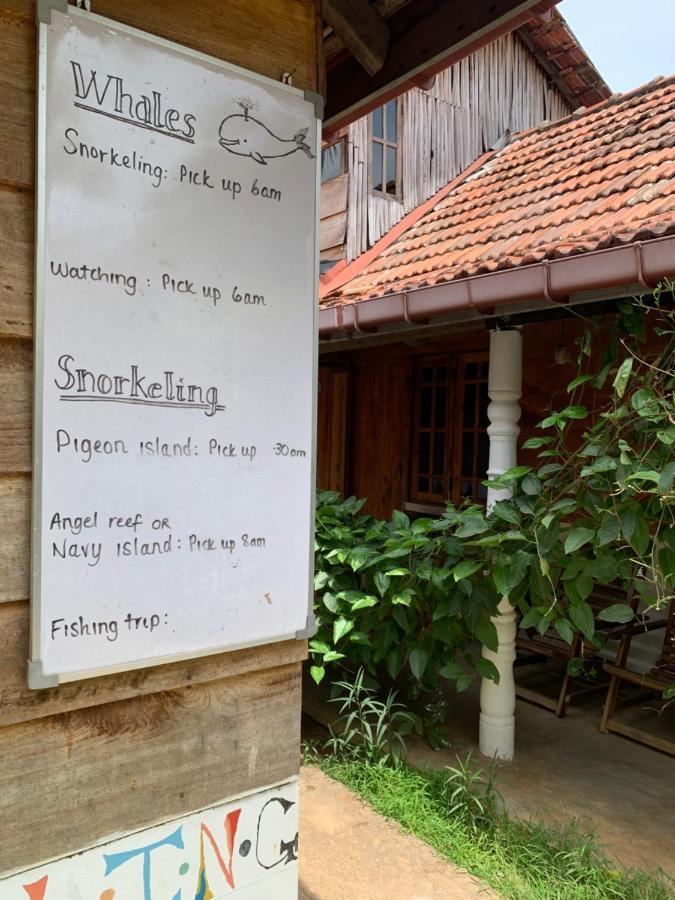 Whales
Snorkeling: Pick up 6am
Watching : Pick up 6am
Snorkeling
Pigeon island: Pick up 30am
Angel reef OR
Navy island: Pick up 8am
Fishing trip:
TiN.G